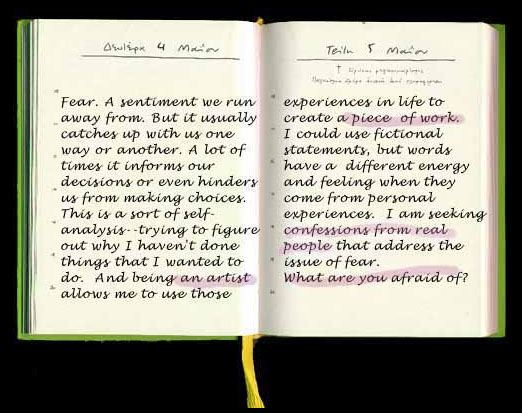 Δευτέρα 4 Μαίου
Fear. A sentiment we run
away from. But it usually
catches up with us one
way or another. A lot of
times it informs our
decisions or even hinders
us from making choices.
This is a sort of self-
analysis--trying to figure
out why I haven't done
things that I wanted to
do. And being an artist
allows me to use those
5 Μαίου
experiences in life to
create a piece of work.
I could use fictional
statements, but words
have a different energy
and feeling when they
come from personal
experiences. I am seeking
confessions from real
people that address the
issue of fear.
What are you afraid of?